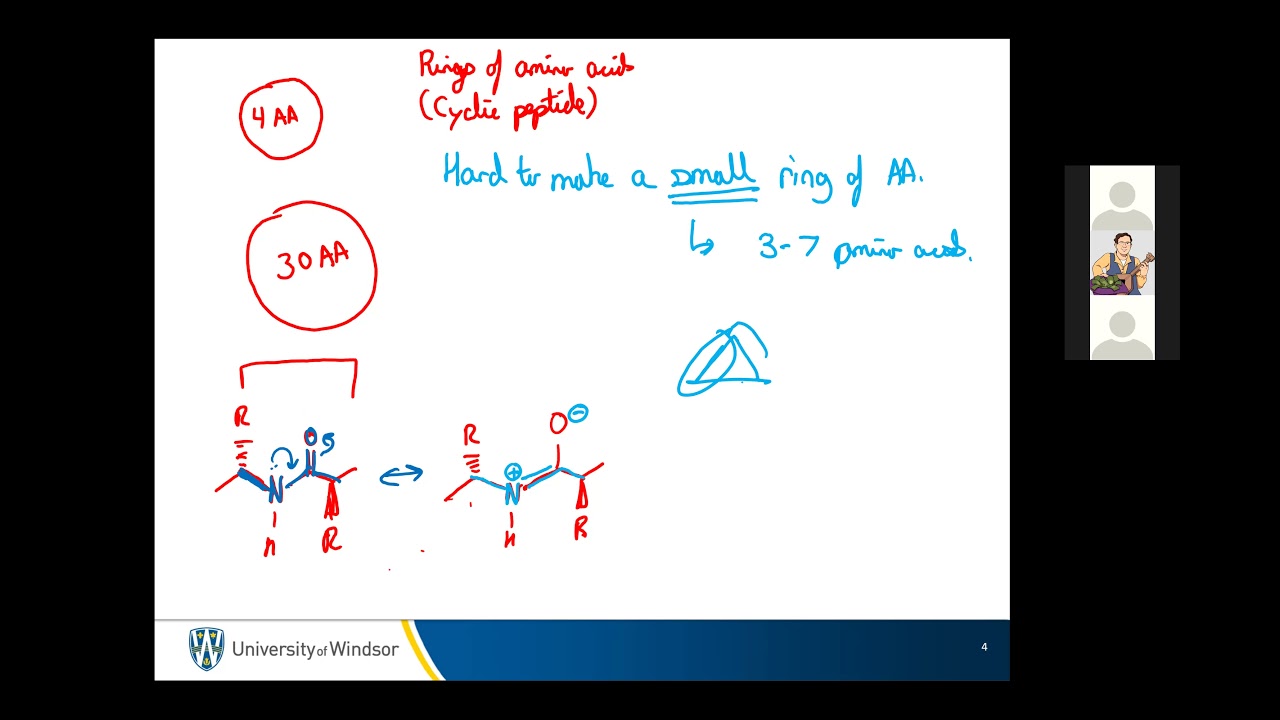 Rings of amino acids
(Cyclic peptide)
4 AA
Hard to make a small ring of AA.
↳ 3-7 amino acids.
30 AA
R
O
N
H
R
R
O ⊖
⊕
N
H
R
University of Windsor
4